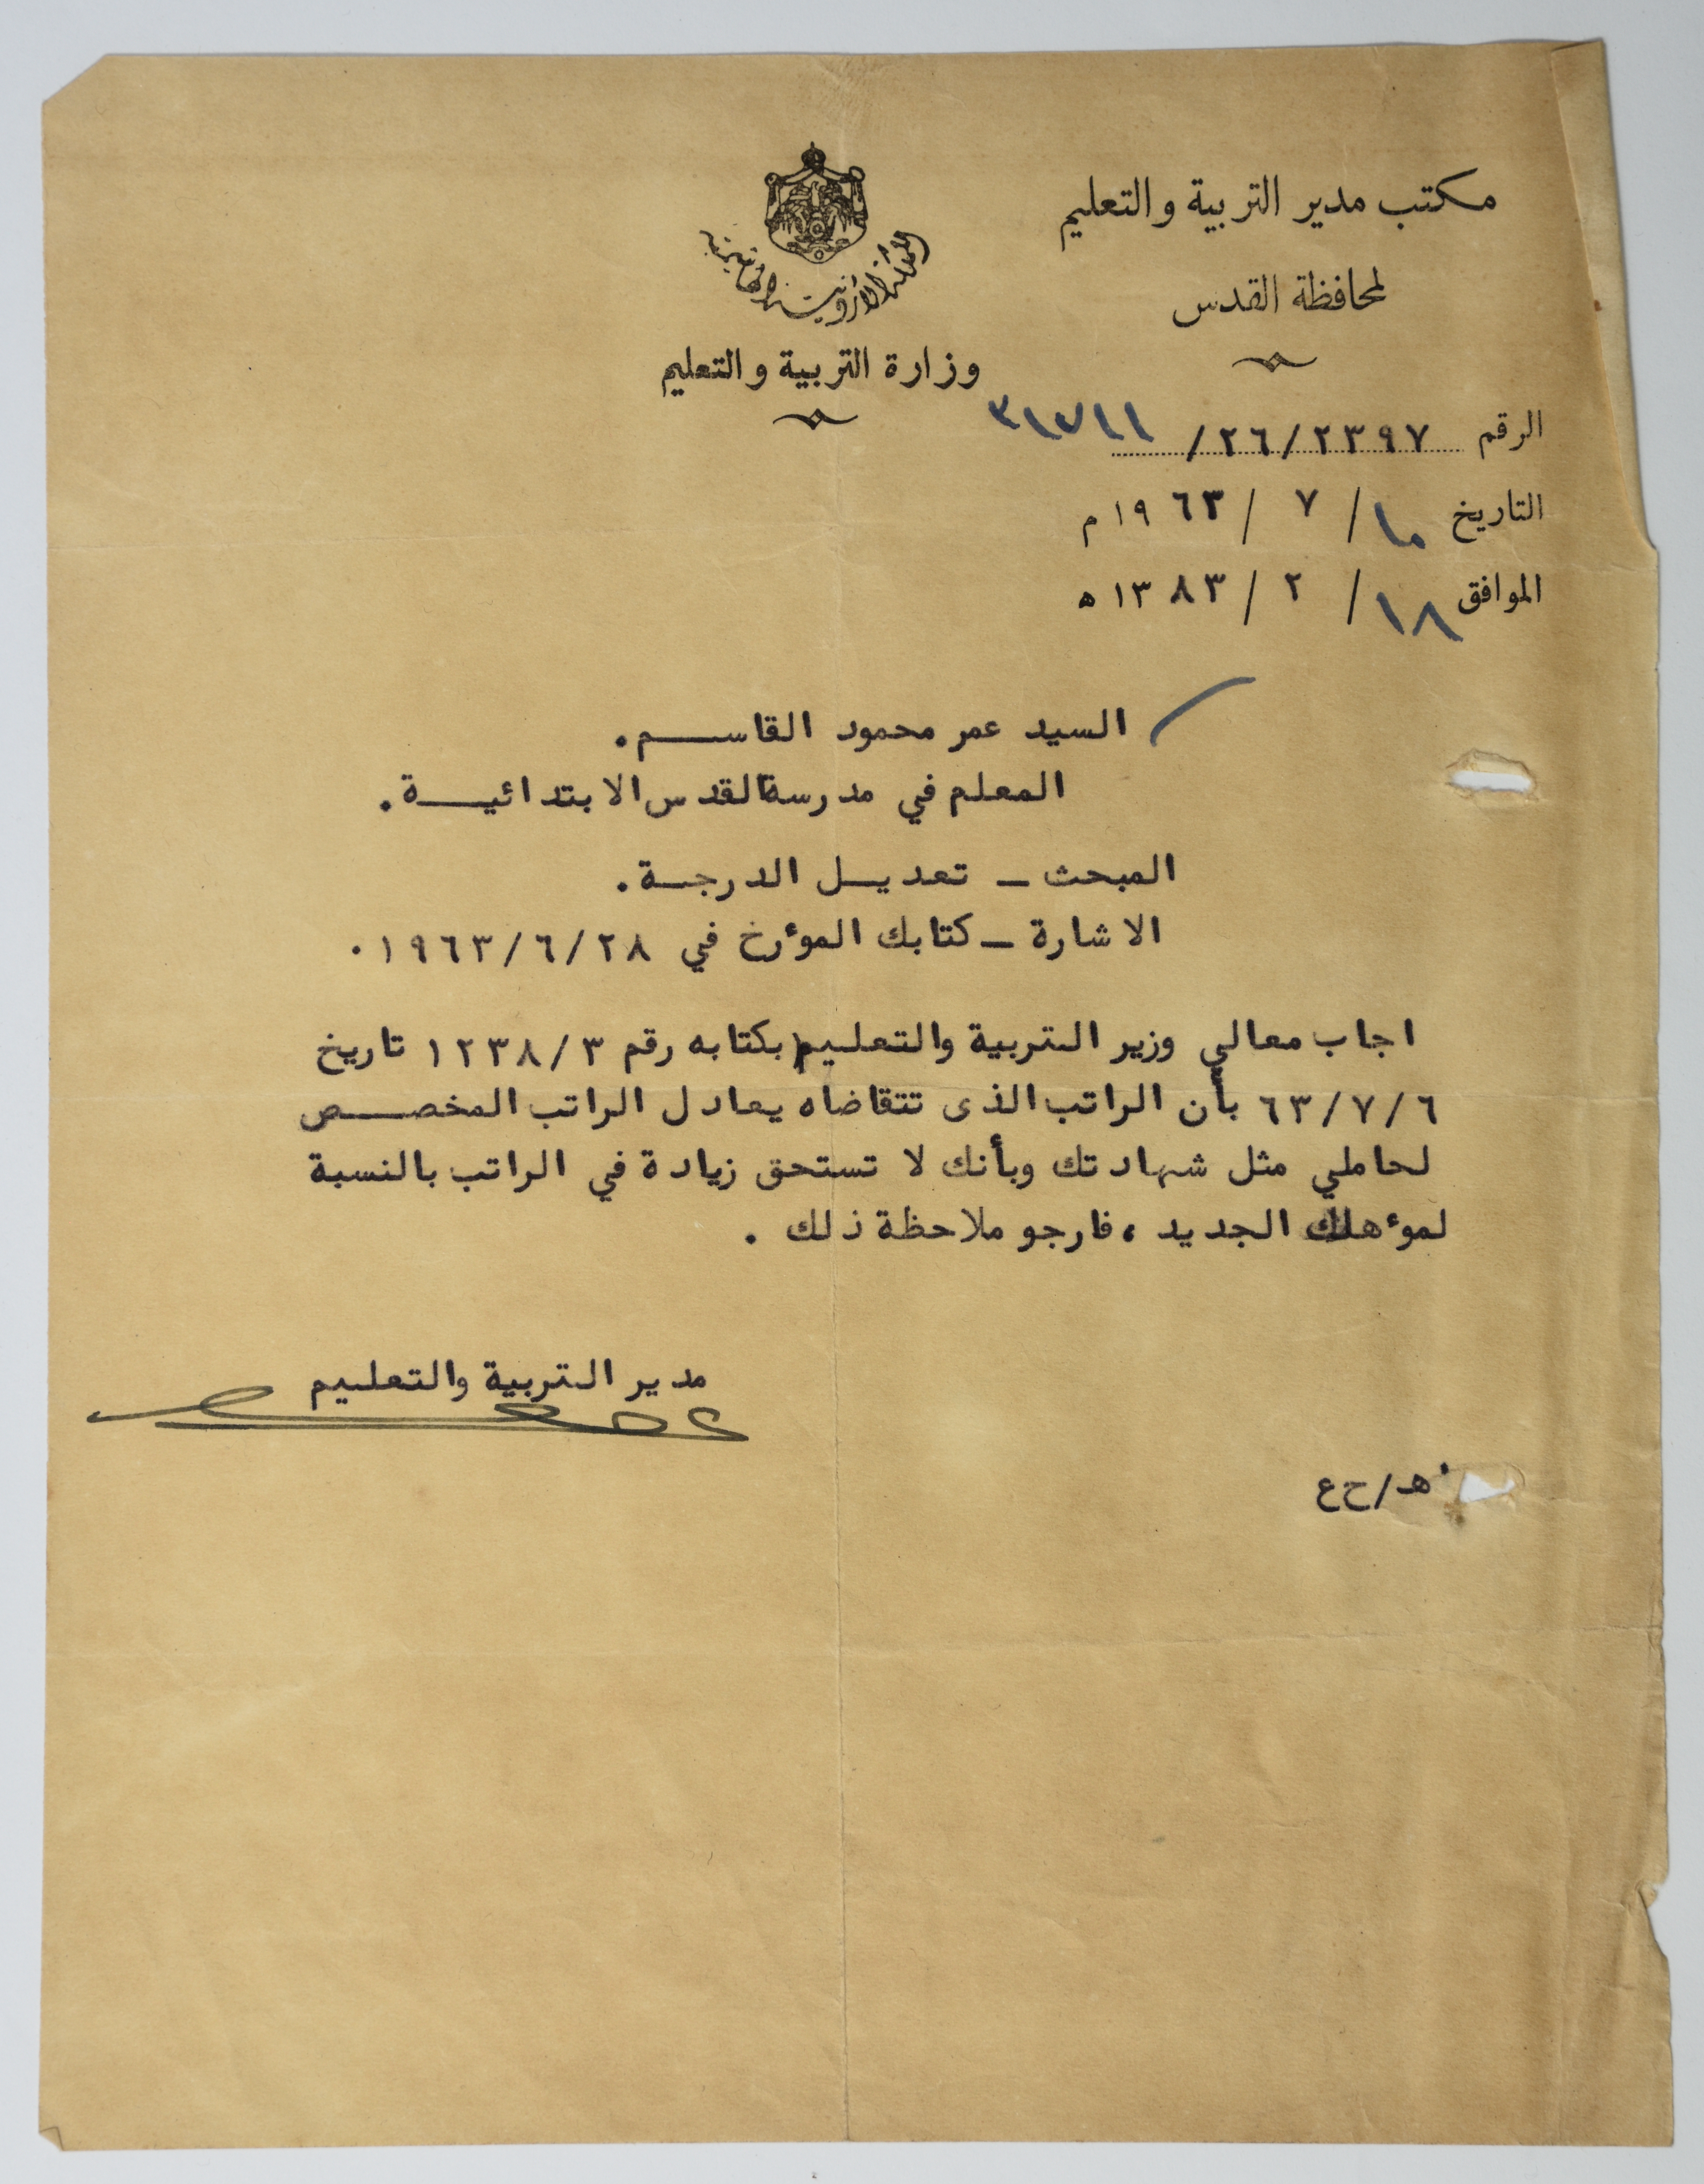 مكتب مدير التربية والتعليم
لمحافظة القدس
المملكة الأردنية الهاشمية
وزارة التربية والتعليم
الرقم ٢٣٩٧/٢٦/
التاريخ ١٠/ ٧ / ١٩٦٣ م
الموافق ١٨/ ٢ / ١٣٨٣ ه
السيد عمر محمود القاسم.
المعلم في مدرسة القدس الابتدائية.
المبحث ـ تعديل الدرجة.
الاشارة ـ كتابك المؤرخ في ٢٨/٦/١٩٦٣٠
اجاب معالي وزير التربية والتعليم بكتابه رقم ٣/١٢٣٨ تاريخ
٦/٧/٦٣ بأن الراتب الذى تتقاضاه يعادل الراتب المخصص
لحاملي مثل شهادتك وبأنك لا تستحق زيادة في الراتب بالنسبة
لمؤهلك الجديد ، فارجو ملاحظة ذلك .
مدير التربية والتعليم
هـ/ح ع